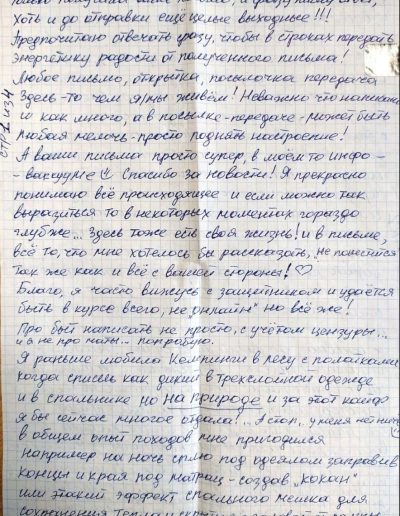 хоть и до отправки ещё целые выходные!!!
Предпочитаю отвечать сразу, чтобы в строках передать
энергетику радости от полученного письма!
Любое письмо, открытка, посылочка передача
здесь - то чем я/мы живём! Неважно что написано
и как много, а в посылке-передаче - может быть
любая мелочь - просто поднять настроение!
А ваши письма просто супер, в моём то инфо-
- вакууме Спасибо за новости! Я прекрасно
понимаю всё происходящее и если можно так
выразиться то в некоторых моментах гораздо
глубже... Здесь тоже есть своя жизнь! и в письме,
всё то, что мне хотелось бы рассказать, не поместится
так же как и всё с вашей стороны! ♡
Благо, я часто вижусь с защитником и удаётся
быть в курсе всего, не "онлайн" но всё же!
Про быт написать не просто, с учётом цензуры...
и я не про маты... попробую.
Я раньше любила Кемпинги в лесу с палатками
когда спишь как дикий в трёхслойной одежде
и в спальнике но на природе и за этот кайф
я бы сейчас многое отдала!.. А стоп, у меня нет ничего
в общем опыт походов мне пригодился
например на ночь сплю под одеялом заправив
концы и края под матрац - создав "кокон"
или этакий эффект спального мешка для
сохранения тепла
стр 1 из 4